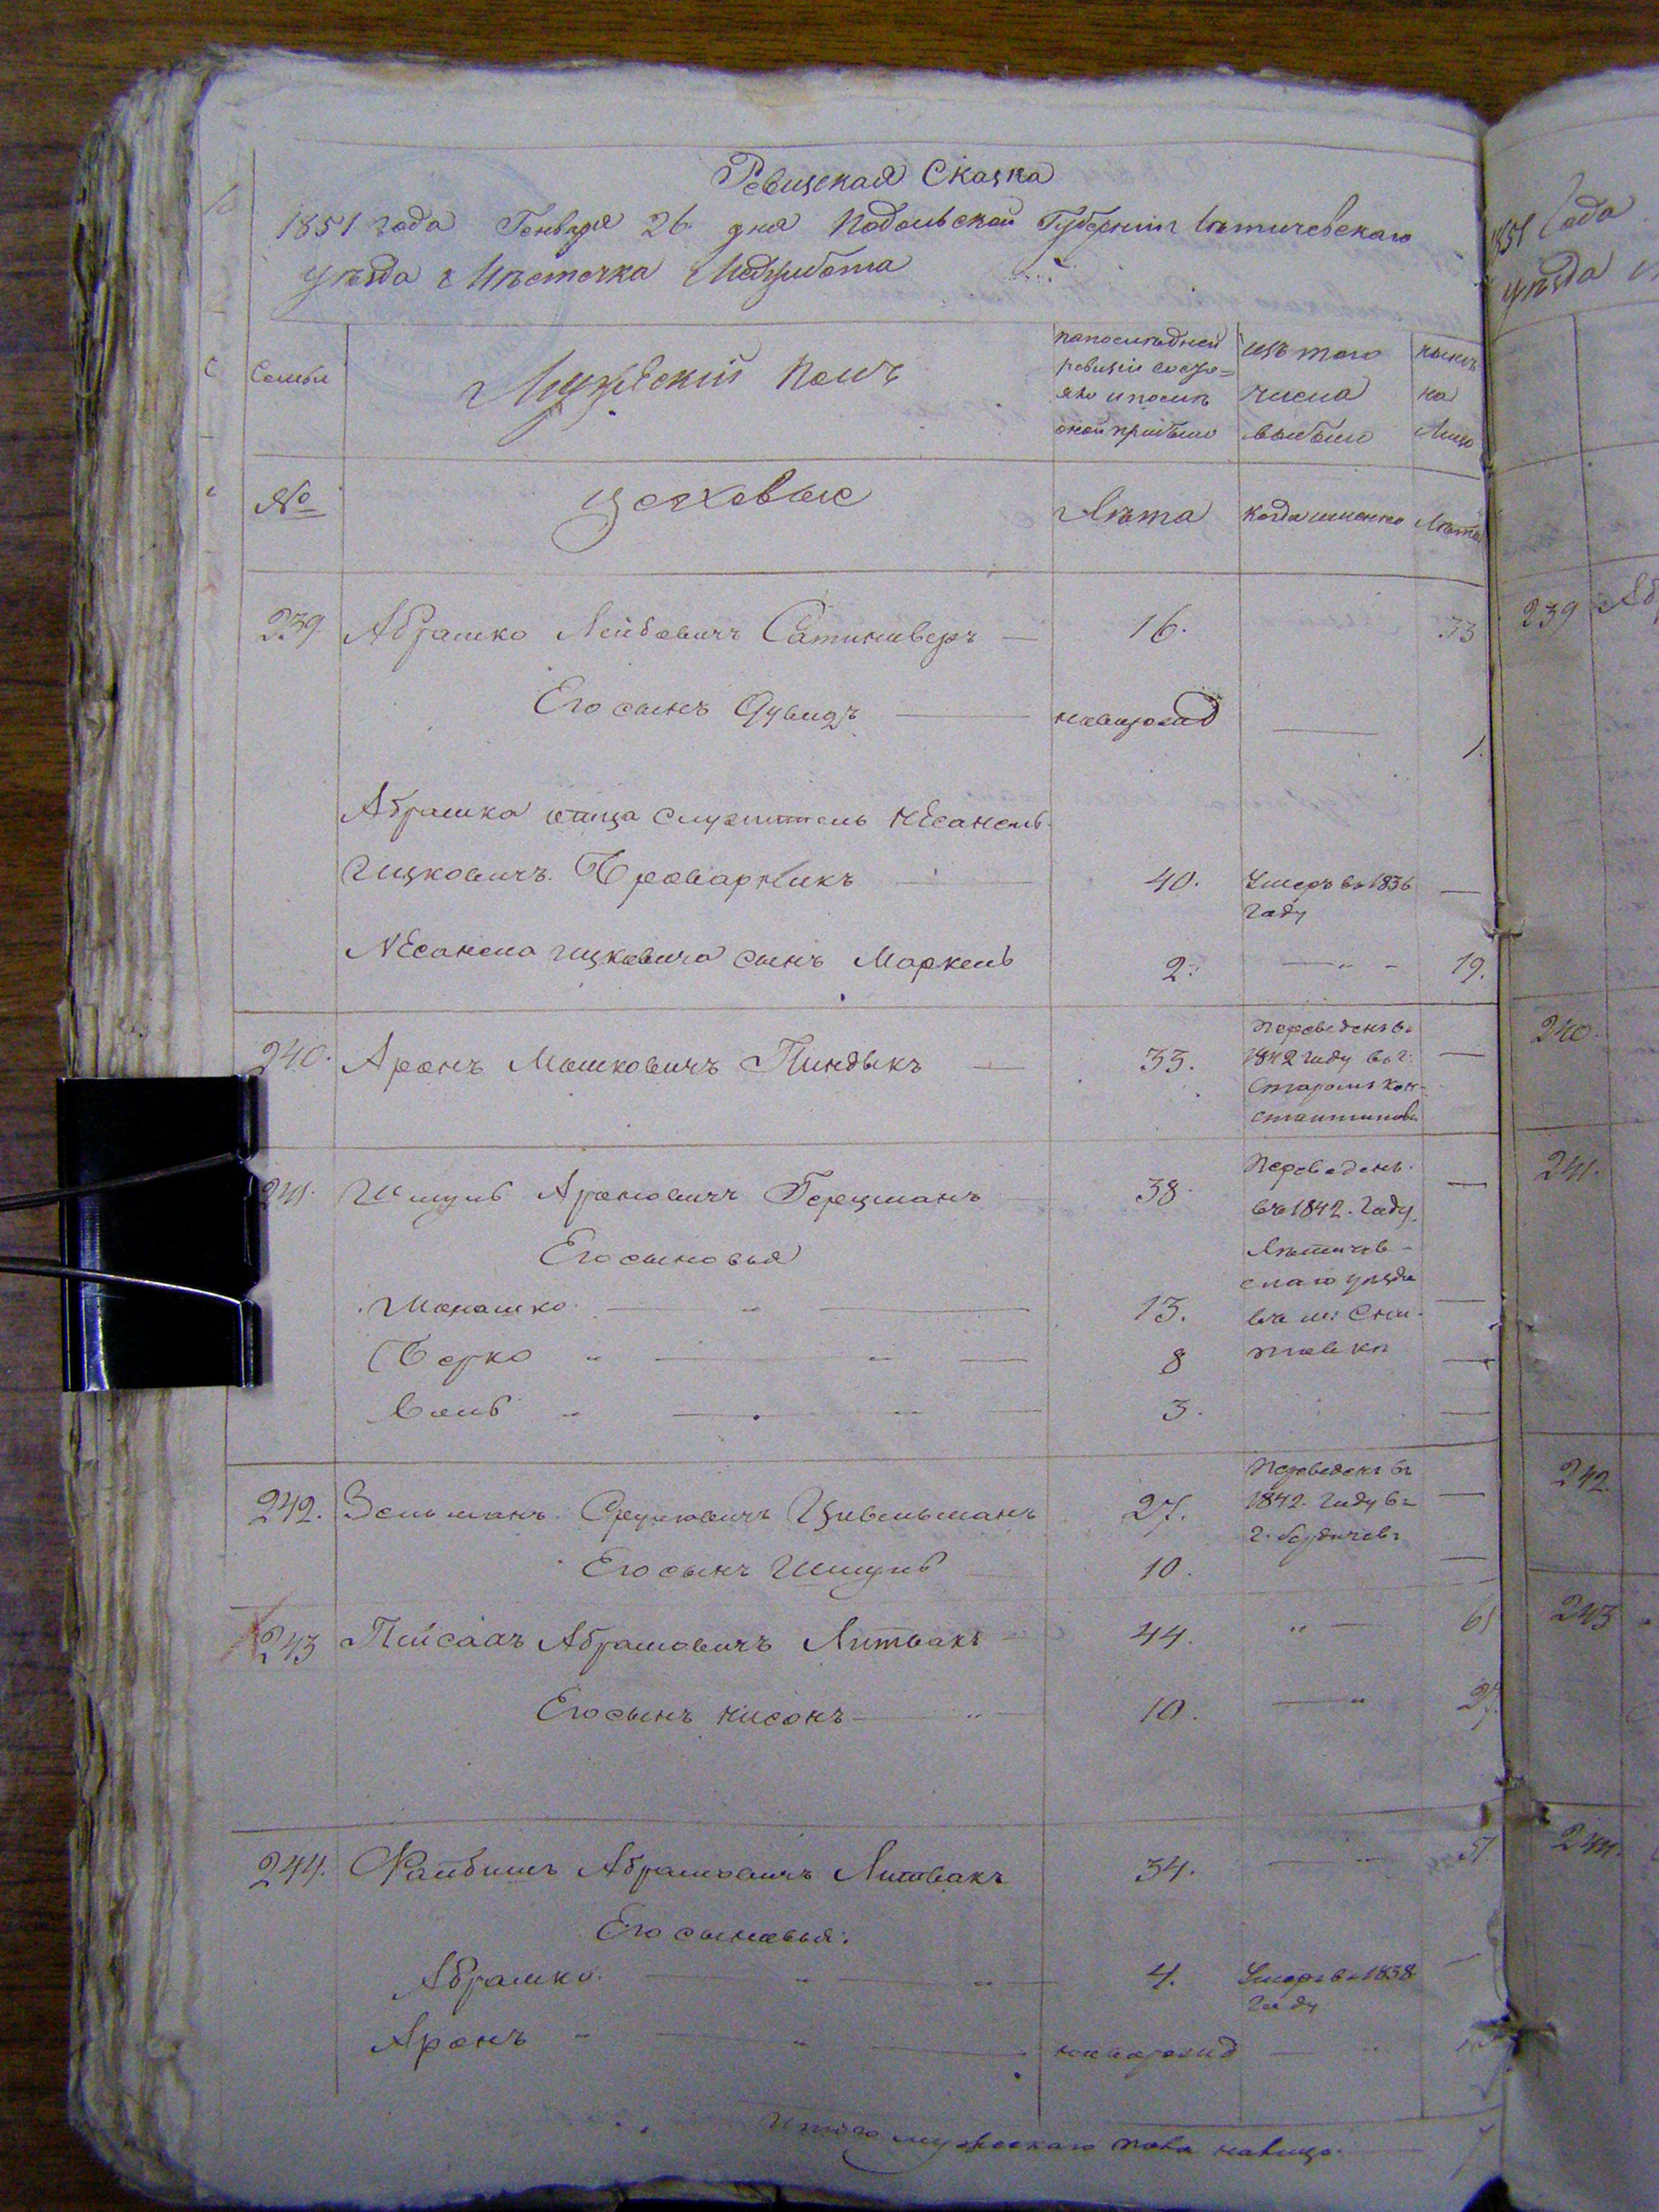 Ревизская Сказка
1851 года Генваря 26 дня Подольской Губерніи Летичевскаго
уезда Местечка Меджибожа
Семьи
Мужескій Полъ
по последней
ревизіи состо=
яло и после
оной прибыло
изъ того
числа
выбыло
ныне
на
Лицо
№
цеховые
Лета
когда именно
Лета
239.
Абрашко Лейбовичъ
16.
33
Его сынъ Дувидъ
новорожд
1.
Абрашка отца служитель
Ицковичъ Броварникъ
40.
Умеръ въ 1836
году
Ицковича сынъ Маркель
2.
19.
240.
Аронъ Мошковичъ Пиндыкъ
33.
Переведенъ въ
1842 году въ г.
Староиъ кон-
стантиновъ
241.
Шмуль Ароновичъ Герцманъ
38
Переведенъ
въ 1842. году
Летичев-
скаго уезда
въ м:
Его сыновья
Монашко
13.
Берко
8
Воль
3.
242.
Зельманъ Сруловичъ Цивельманъ
27.
Переведенъ въ
1842. году въ
г. Бердичевъ
Его сынъ Шмуль
10.
243
Пейсахъ Абрамовичъ Литвакъ
44.
61
Его сынъ Нисонъ
10.
27.
244.
Файбишъ Абрамовичъ Литвакъ
34.
51
Его сыновья:
Абрашко
4.
Умеръ въ 1838
году
Аронъ
новорожд
Итого мужескаго пола налицо
7
1851 Года
уезда
239
Аб
240.
241.
242.
243
244.